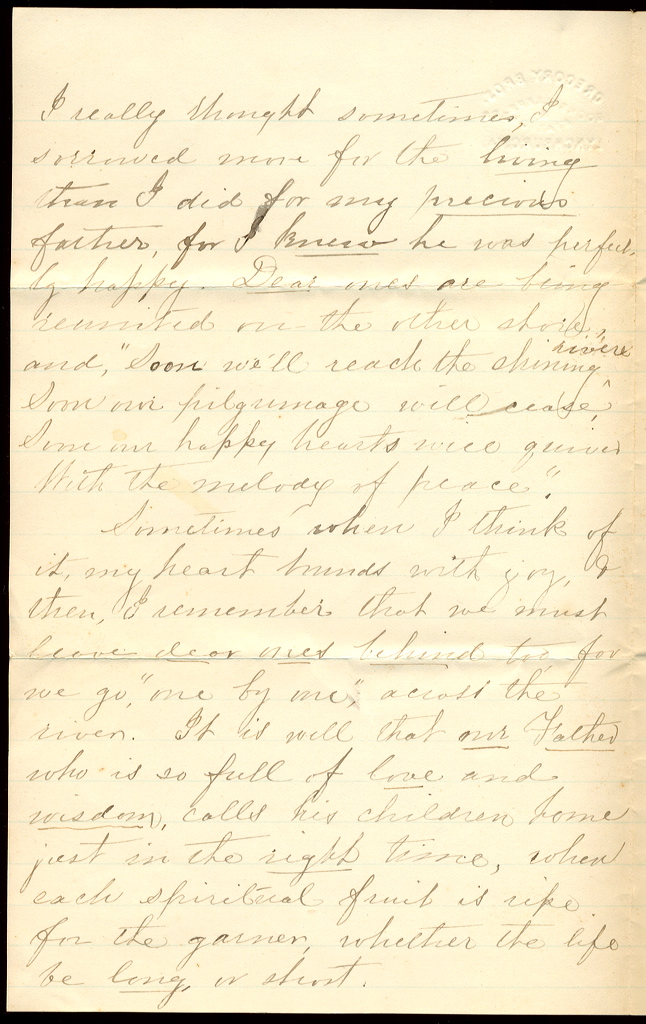 I really thought sometimes, I
sorrowed more for the living
than I did for my precious
father, for I knew he was perfect-
ly happy. Dear ones are being
reunited on the other shore,
and, "Soon we'll reach the shining river
Soon our pilgrimage will cease,
Soon our happy hearts will quiver
With the melody of peace".
Sometimes when I think of
it, my heart bounds with joy, &
then, I remember that we must
leave dear ones behind too, for
we go, "one by one", across the
river. It is well that our Father
who is so full of love and
wisdom, calls his children home
just in the right time, when
each spiritual fruit is ripe
for the garner, whether the life
be long, or short.